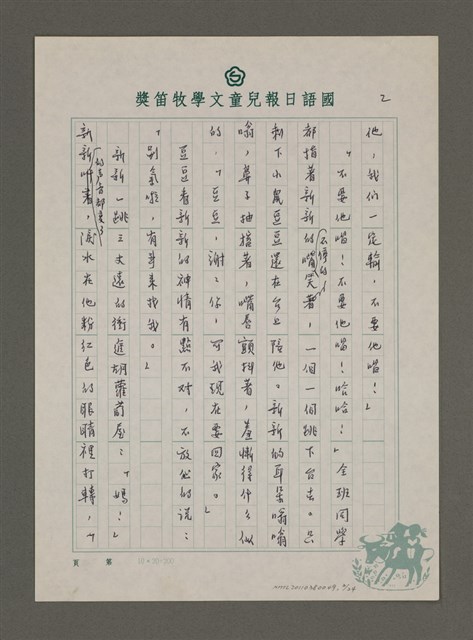 國語日報兒童文學牧笛獎
2
他，我們一定輸，不要他唱！」
「不要他唱！不要他唱！哈哈！」全班同學
都指著新新的嘴不停的笑著，一個一個跳下台去。只
剩下小鼠豆豆還在台上陪他。新新的耳朵嗡嗡
嗡，鼻子抽搐著，嘴唇顫抖著，羞慚得什么似
的，「豆豆，謝謝你，可我現在要回家。」
豆豆看新新的神情有點不對，不放心的說：
「別氣喔，有事來找我。」
新新一跳三丈遠的衝進胡蘿蔔屋：「媽！」
新新叫著，的聲音都哭了淚水在他粉紅色的眼睛裡打轉，「
頁 第